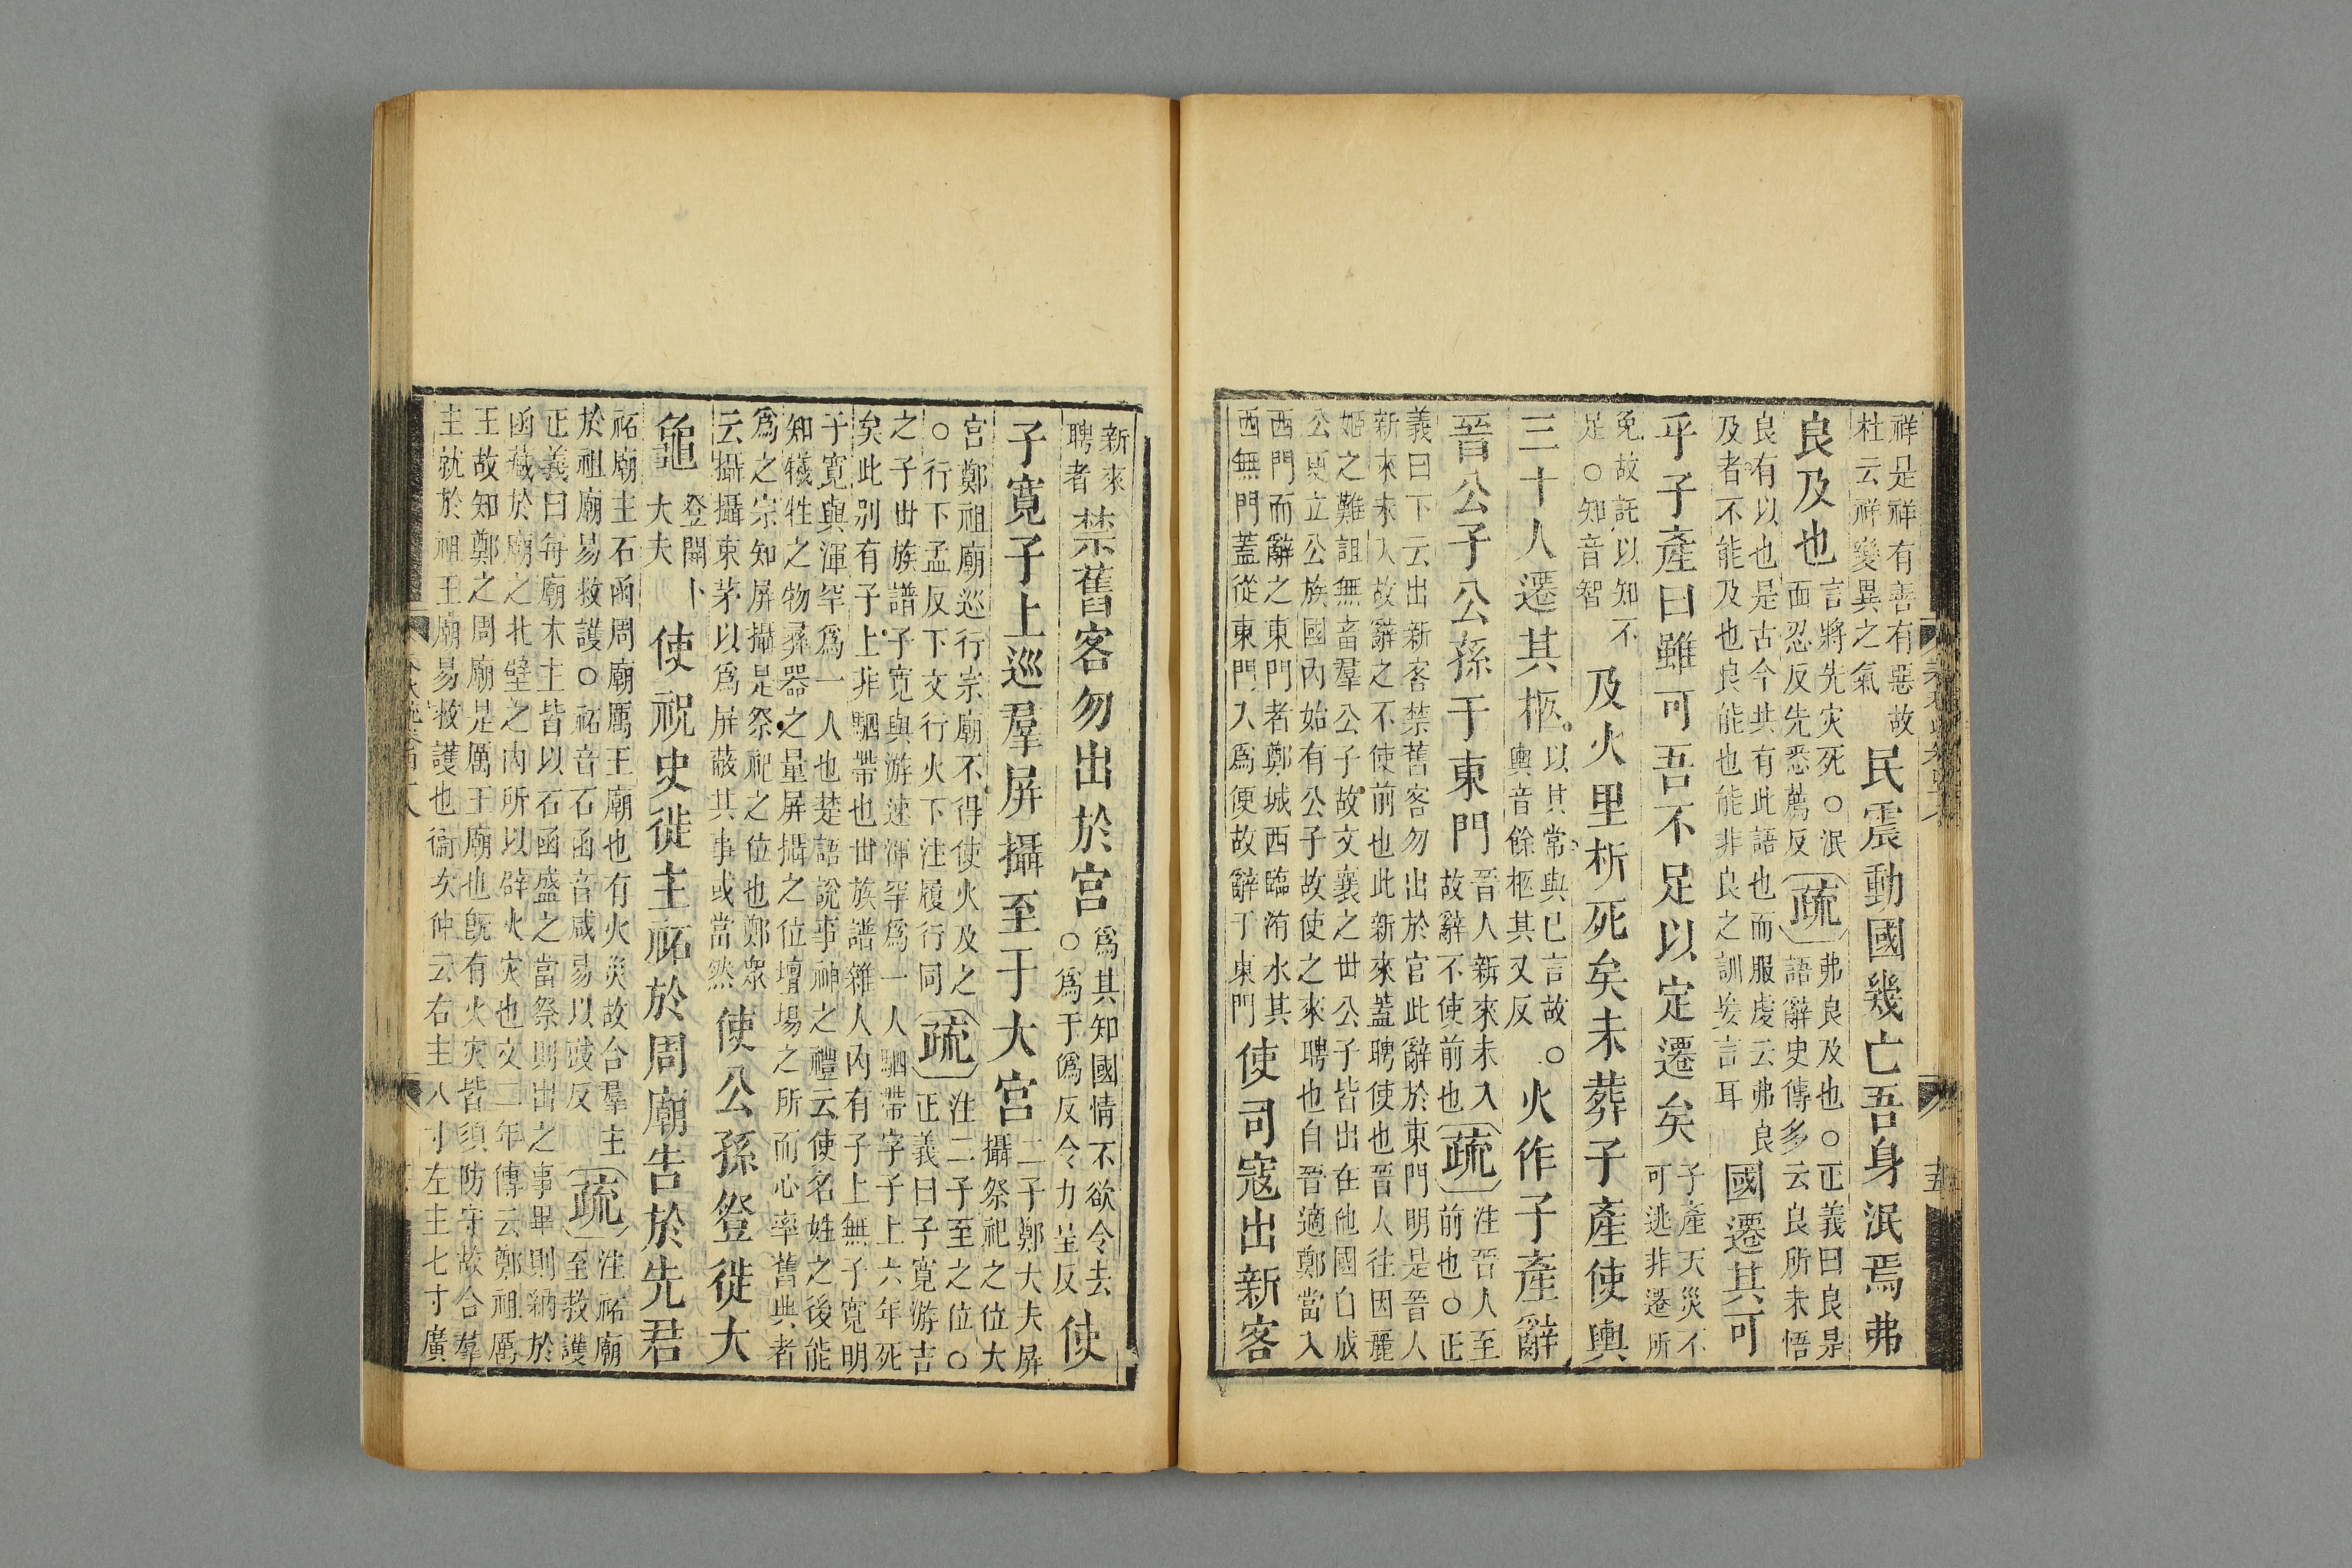 祥是祥有善有惡故
杜云祥變異之氣
民震動國幾亡吾身泯焉弗
良及也
言將先灾死○泯
面忍反先悉薦反
疏
弗良及也○正義曰良是
語辭史傳多云良所未悟
良有以也是古今共有此語也而服虔云弗良
及者不能及也良能也能非良之訓妄言耳
國遷其可
乎子產曰雖可吾不足以定遷矣
子產天災不
可逃非遷所
免故託以知不
足○知音智
及火里析死矣未葬子產使輿
三十人遷其柩
以其常與己言故○
輿音餘柩其又反
火作子產辭
晉公子公孫于東門
晉人新來未入
故辭不使前也
疏
注晉人至
前也○正
義曰下云出新客禁舊客勿出於宮此辭於東門明是晉人
新來未入故辭之不使前也此新來蓋聘使也晉人往因麗
姬之難詛無畜羣公子故文襄之世公子皆出在他國自成
公更立公族國內始有公子故使之來聘也自晉適鄭當入
西門而辭之東門者鄭城西臨洧水其
西無門蓋從東門入爲便故辭于東門
使司寇出新客
新來
聘者
禁舊客勿出於宮
爲其知國情不欲令去
○爲于僞反令力呈反
使
子寬子上巡羣屏攝至于大宮
二子鄭大夫屏
攝祭祀之位大
宮鄭祖廟巡行宗廟不得使火及之
○行下孟反下文行火下注履行同
疏
注二子至之位○
正義曰子寬游吉
之子世族譜子寬與游速渾罕爲一人駟帶字子上六年死
矣此別有子上非駟帶也世族譜雜人內有子上無子寬明
子寬與渾罕爲一人也楚語說事神之禮云使名姓之後能
知犧牲之物彝器之量屏攝之位壇場之所而心率舊典者
爲之宗知屏攝是祭祀之位也鄭眾
云攝攝束茅以爲屏蔽其事或當然
使公孫登徙大
龜
登開卜
大夫
使祝史徙主祏於周廟告於先君
祏廟主石函周廟厲王廟也有火災故合羣主
於祖廟易救護○祏音石函音咸易以豉反
疏
注祏廟
至救護
正義曰每廟木主皆以石函盛之當祭則出之事畢則納於
函藏於廟之北壁之內所以辟火灾也文二年傳云鄭祖厲
王故知鄭之周廟是厲王廟也既有火灾皆須防守故合羣
主就於祖王廟易救護也衞次仲云右主八寸左主七寸廣